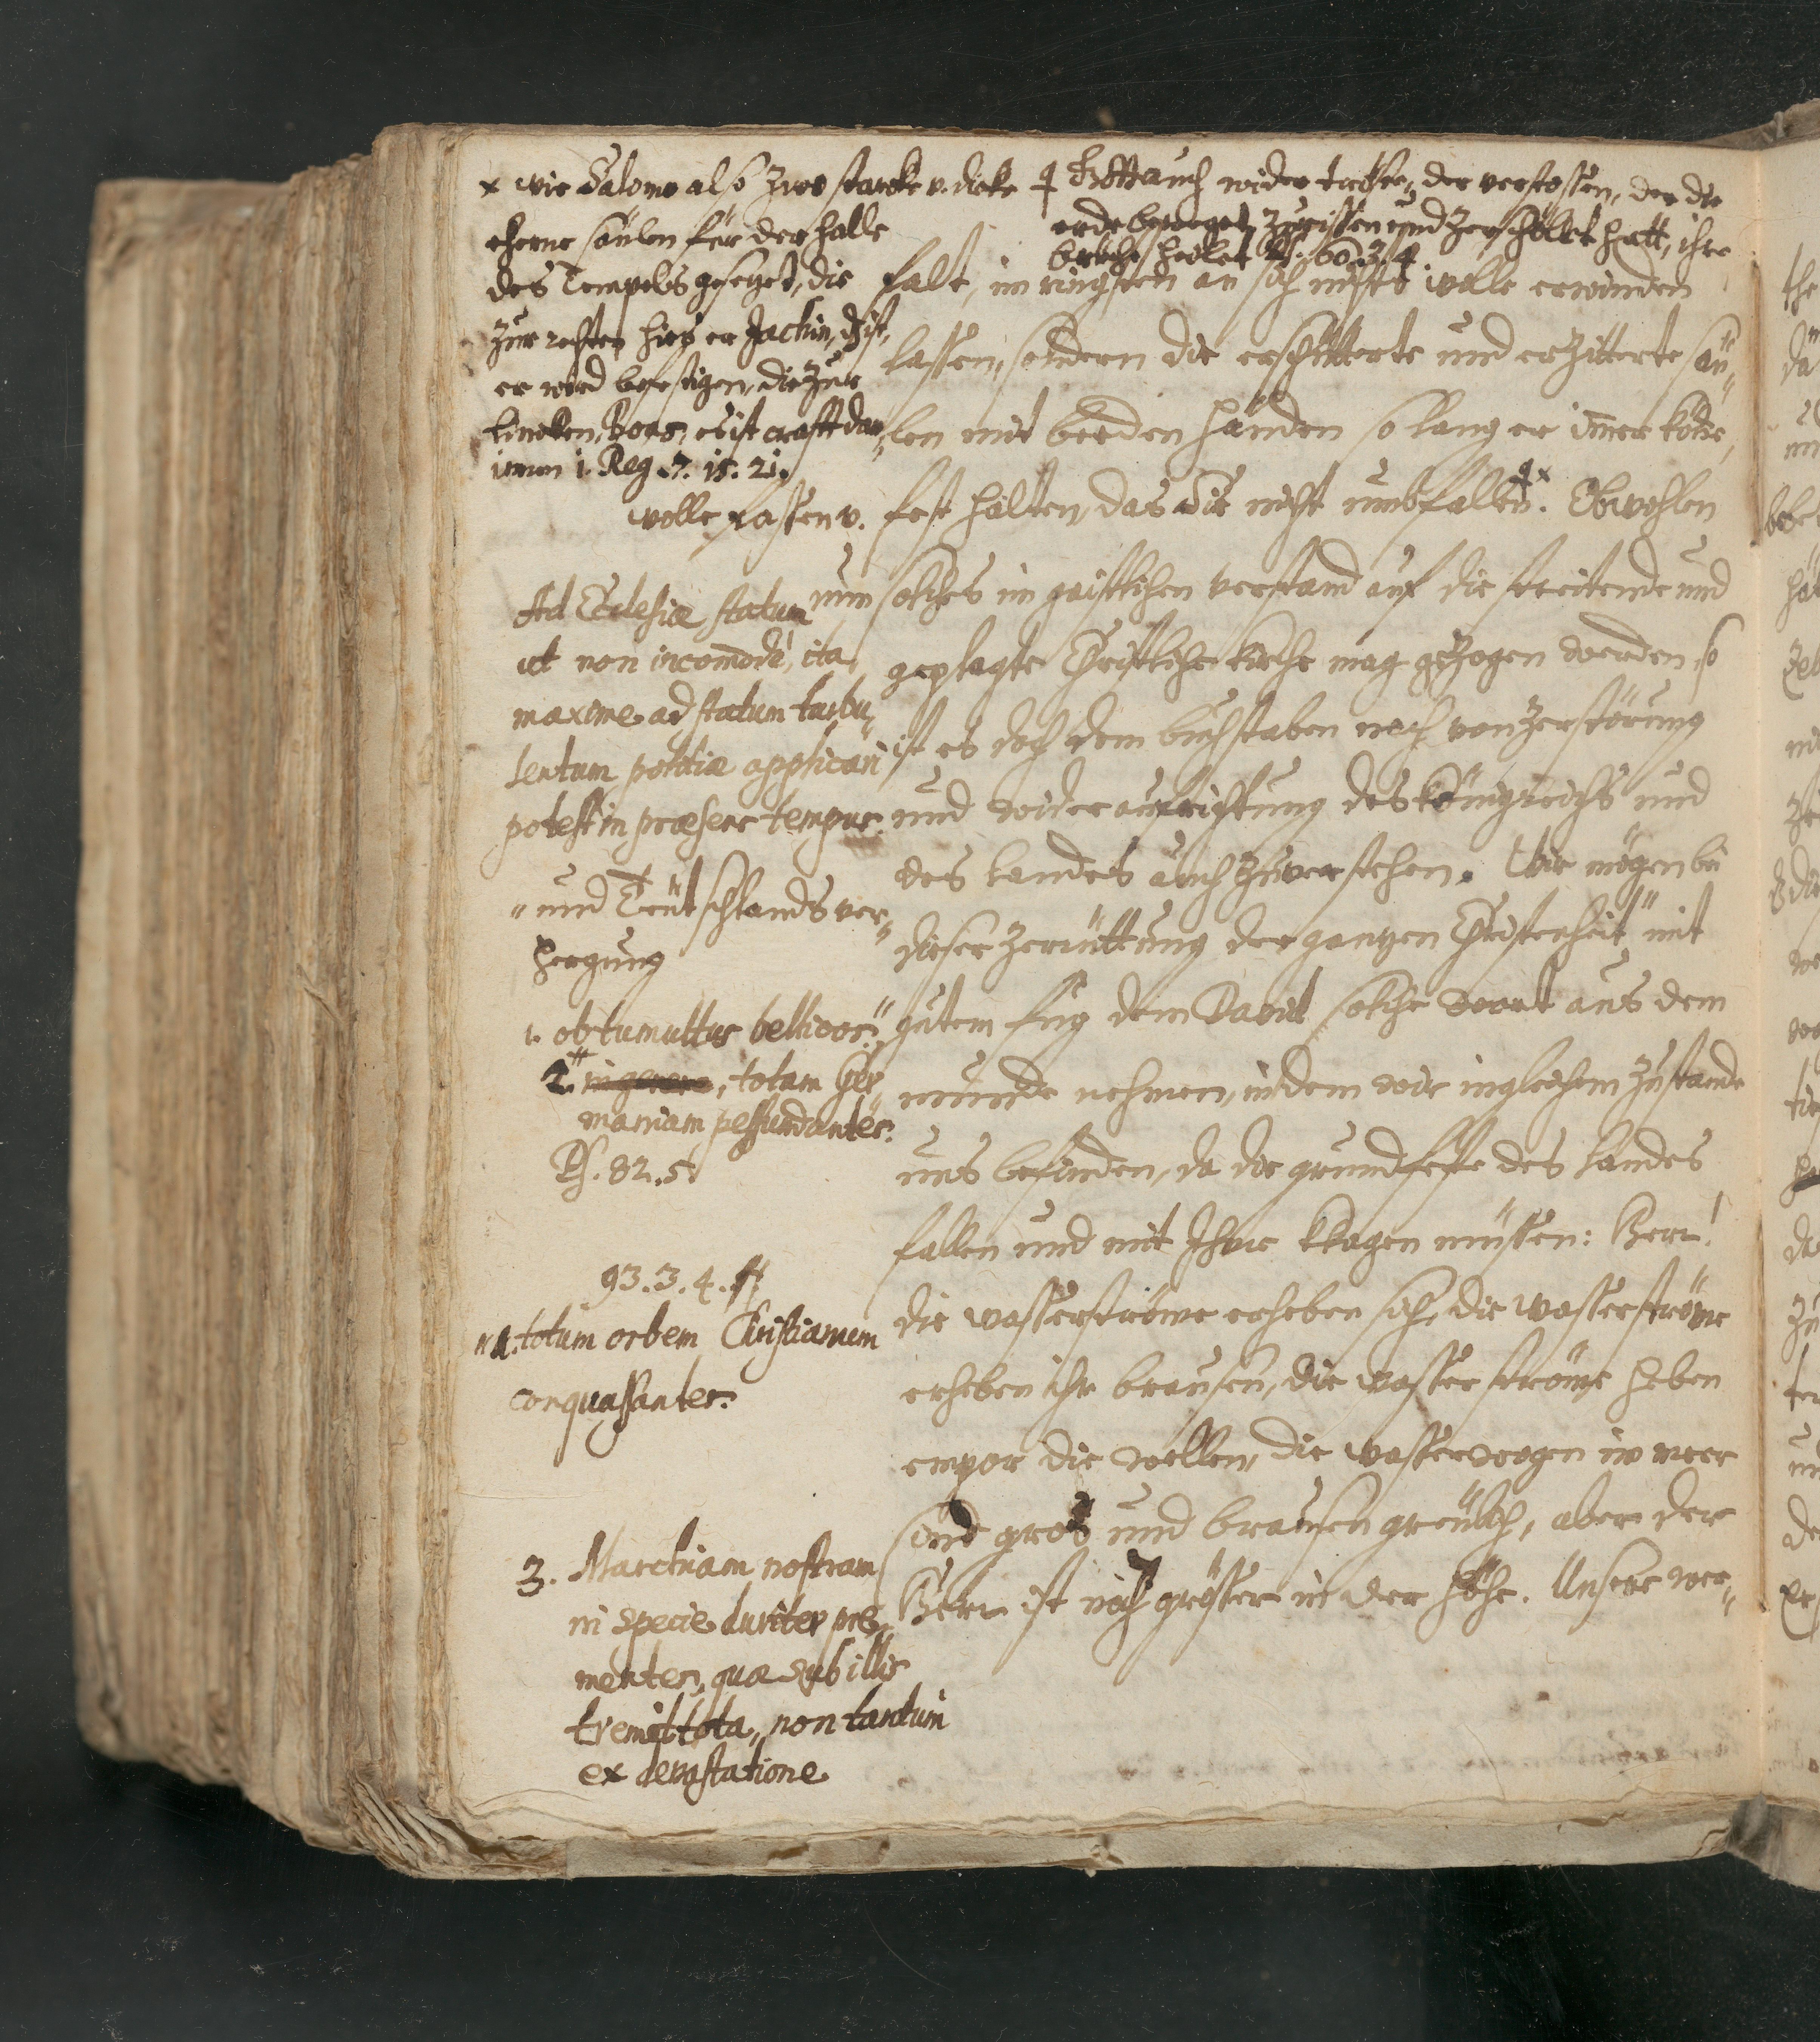 x wie Salomo also zwo starcke v. dicke
eherne säulen für der halle
des Tempels gesetzet, die
zur rechten hies er Jachin, d. ist,
er wird befestigen, die zur
lincken, Boas, es ist crafft dar„
innen 1. Reg. 7. 15. 21.
wolle fassen v.
Ad Ecclesiæ statum
ut non incom̄odè, ita
maxime ad statum turbu„
lentum politiæ applicari
potest in præsens tempus.
„ und Teütschlands ver„
hergung
1. ob tumultus bellicos
2. totam Ger„
maniam pessundantes.
Ps. 82. 5.
93. 3. 4.
totum orbem Christianum
conquassantes.
3. Marchiam nostram
in specie duriter pre„
mentes, quæ sub illis
tremit tota, non tantum
ex devastatione
Gott auch wider tröste, der verstossen, der die
erde beweget, zurissen und zerschöllet hatt, ihre
brüche heilet Ps. 60. 3. 4
falt, im ringsten an sich nichts wolle erwinden
lassen, sondern die erschütterte und erzitterte säu„
len mit beeden händen so lang er im̄er köne,
fest halten, das sie nicht umbfallen. Obwohlen
nun solches im geistlichen verstand auf die streitende und
geplagte Christliche kirche mag gezogen werden so
ist es doch dem buchstaben nach von zerstörung
und wider aufrichtung des Königreichs und
des Landes auch zu verstehen. Wir mögen bei
dieser zerrüttung der gantzen Christenheit „ mit
gutem fug dem David solche wort aus dem
munde nehmen, indem wir in gleichem zustande
uns befinden, da die grundfeste des Landes
fallen und mit Ihme klagen müssen: Herr!
die wasserströme erheben sich, die wasserströme
erheben ihr brausen, die wasserströme heben
empor die wellen, die wasserwogen im meer
sind gros und brausen greülich, aber der
Herr ist noch grösser in der höhe. Unsere wer„